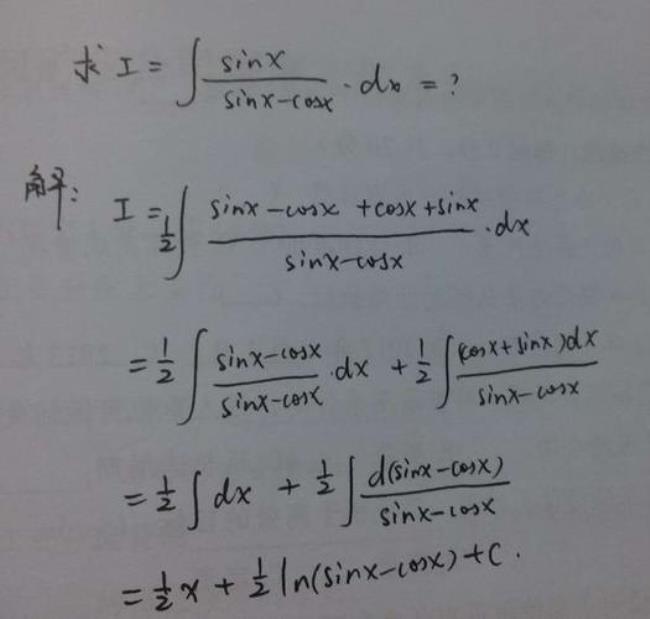 求 I = ∫ sinx / (sinx-cosx) · dx = ?
解: I = 1/2 ∫ (sinx-cosx +cosx+sinx) / (sinx-cosx) · dx
= 1/2 ∫ (sinx-cosx) / (sinx-cosx) · dx + 1/2 ∫ (cosx+sinx)dx / (sinx-cosx)
= 1/2 ∫ dx + 1/2 ∫ d(sinx-cosx) / (sinx-cosx)
= 1/2 x + 1/2 ln(sinx-cosx) + C .